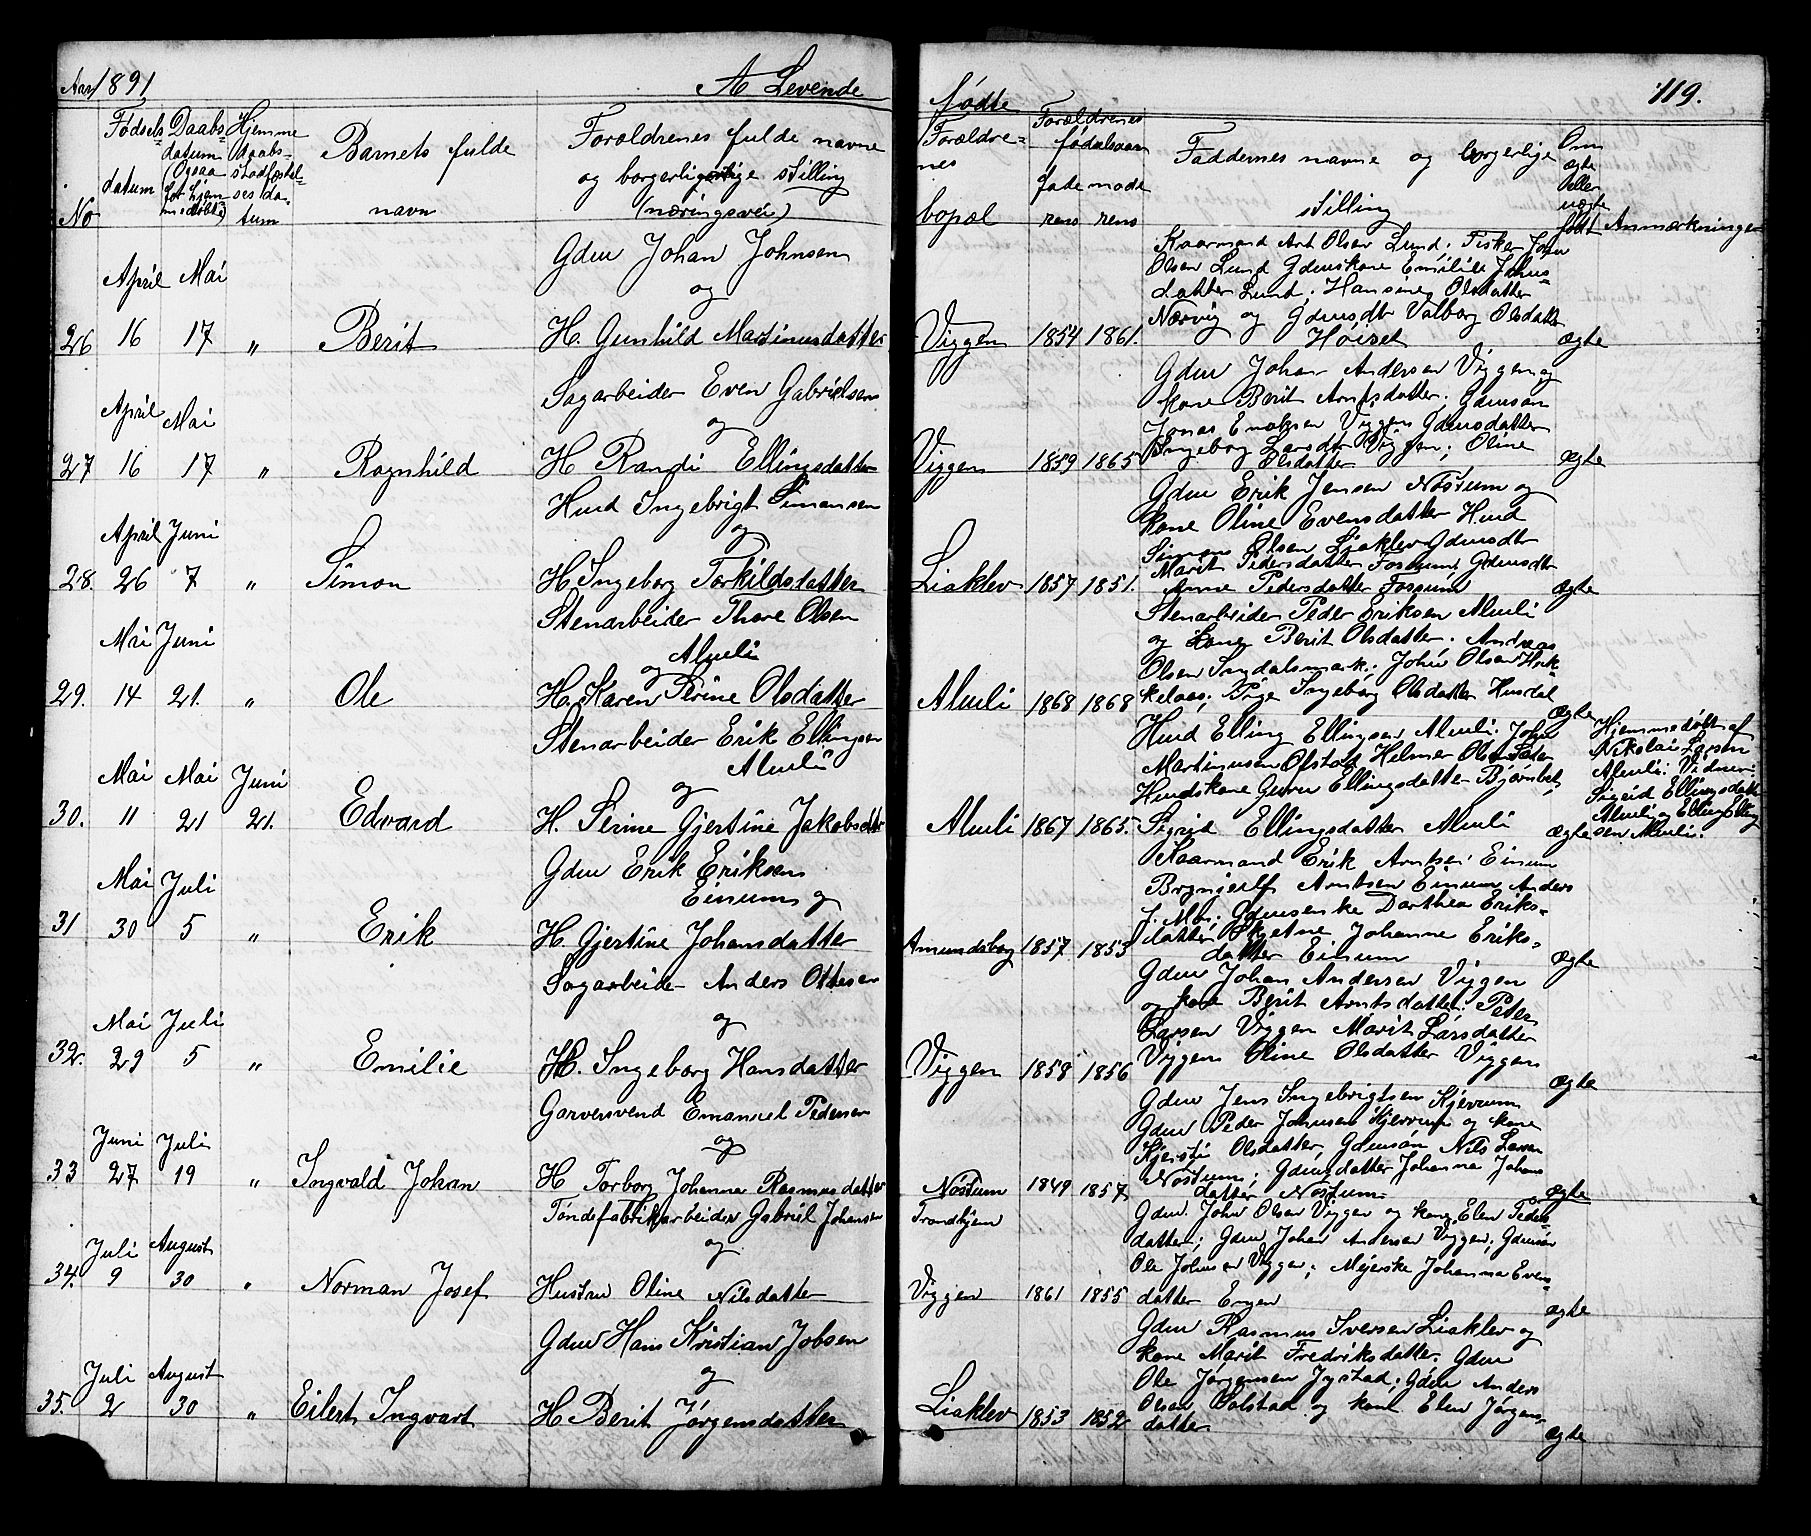 Aar 1891 A Levende fødte 119.
No
Fødsels datum
Daabs datum (Ogsaa for hjemmedøbte)
Hjemme daabs stadfæstelses datum
Barnets fulde navn
Forældrenes fulde navne og borgerlige stilling (næringsvei)
Forældrenes bopæl
Forældrenes fødselsaar faderens moderens
Faddernes navne og borgerlige stilling
Om ægte eller uægte født
Anmærkninger
April Mai
Gdm Johan Johnsen
og
26 16 17 " Berit H. Gunhild Martinusdatter
Viggen 1854 1861.
Kaarmand Arnt Olsen Lund; Fisker John
Olsen Lund Gdmskone Emilie Johns-
datter Lund; Hansine Olsdatter
Nærvig og Gdmsdtr Valborg Olsdatter
Høiset ægte
April Mai
Sagarbeider Even Gabrielsen
og
27 16 17 " Ragnhild H Randi Ellingsdatter
Viggen 1859 1865
Gdm Johan Andersen Viggen og
kone Berit Arntsdatter. Gdmsøn
Jonas Viggen Gdmsdatter
Ingeborg Larsdtr Viggen; Oline
Olsdatter ægte
April Juni
Husd Ingebrigt Simonsen
og
28. 26 7 " Simon H Ingeborg Torkildsdatter
Liaklev 1857 1851.
Gdm Erik Jensen Nostum og
kone Oline Evensdatter Husd
Simon Olsen Liaklev Gdmsdtr
Marit Pedersdatter Fossum, Gdmsdtr
Anne Pedersdatter Fossum ægte
Mai Juni
Stenarbeider Thore Olsen
og Almli
29. 14 21. " Ole H. Karen Perine Olsdatter
Almli 1868 1868
Stenarbeider Peder Eriksen Almli
og kone Berit Olsdatter. Andreas
Olsen Ingdalsmark; John Olsen
Pige Ingeborg Olsdatter Husdal
ægte
Mai Mai Juni
Stenarbeider Erik Ellingsen
Almli
og
30. 11 21 21. Edvard H. Serine Gjertine Jakobsdtr
Almli 1867 1865.
Husd Elling Ellingsen Almli. John
Martinusen Ofstad Helmer Olsen
Husdskone Guru Ellingsdatter
Sigrid Ellingsdatter Almli ægte
Hjemmedøbt af
Nikolai Larsen
Almli. Vidner:
Sigrid Ellingsdatter
Almli og Elling Elling
sen Almli.
Mai Juli
Gdm Erik Eriksen
Einum og
31 30 5 " Erik H Gjertine Johansdatter
Amundsbog 1857 1853
Kaarmand Erik Arntsen Einum
Brynjulf Arntsen Einum Anders
J. Moe. Gdmsenke Dorthea Eriks-
datter Skjetne Johanne Eriks-
datter Einum ægte
Mai Juli
Sagarbeider Anders Ottesen
og
32. 29 5 " Emilie H. Ingeborg Hansdatter
Viggen 1858 1856
Gdm Johan Andersen Viggen
og kone Berit Arntsdatter. Peder
Larsen Viggen Marit Larsdatter
Viggen Oline Olsdatter Viggen
ægte
Juni Juli
Garversvend Emanuel Pedersen
og
33 27 19 " Ingvald Johan H Torborg Johanna Rasmusdatter
Nostum 1849 1857
Trondhjem
Gdm Jens Ingebrigtsen Hjerrum
Gdm Peder Johnsen Hjerrum og kone
Kjersti Olsdatter, Gdmsøn Nils Larsen
Nostum; Gdmsdatter Johanna Johans
datter Nostum. ægte
Juli August
Tøndefabrikarbeider Gabriel Johansen
og
34. 9 30 " Norman Josef Hustru Oline Nilsdatter
Viggen 1861 1855
Gdm. John Olsen Viggen og kone Elen Peders-
datter; Gdm Johan Andersen Viggen; Gdmsøn
Ole Johnsen Viggen; Mejerske Johanna Evens-
datter Engen ægte
Juli August
Gdm Hans Kristian Jobsen
og
35. 2 30 " Eilert Ingvart H Berit Jørgensdatter
Liaklev 1853 1852
Gdm Rasmus Iversen Liaklev og
kone Marit Fredriksdatter. Gdm
Ole Jørgensen Jystad; Gdm Anders
Olsen Solstad og kone Elen Jørgens-
datter. ægte